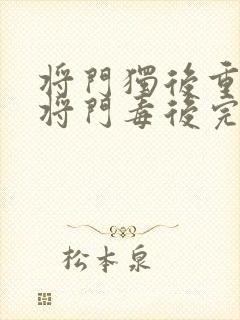 将門獨後重
将門毒後完
松本泉